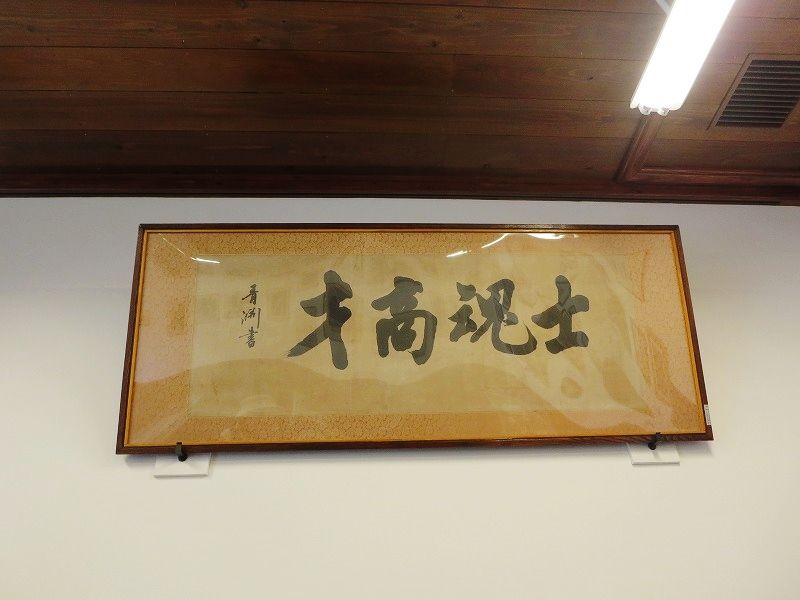 士魂商才
青淵書